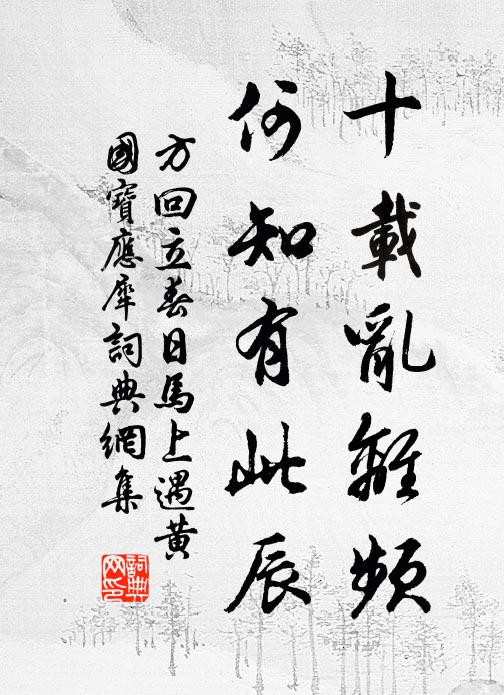 十載亂離頻
何知有此辰
方回立春日馬上遇黃
國寶應犀詞典網集
詞典
网印